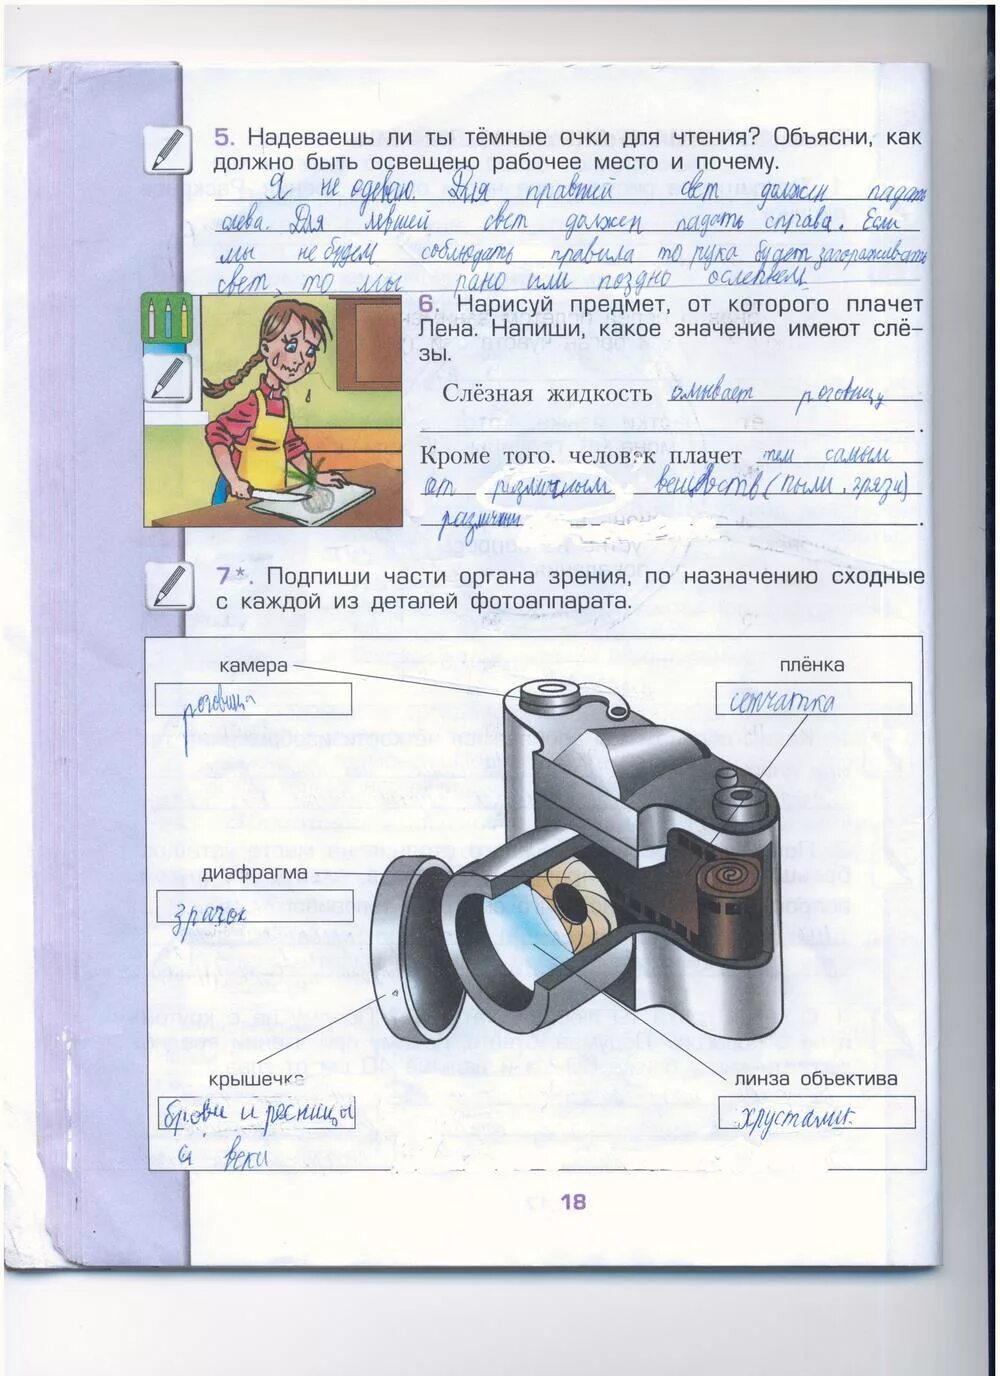 5. Надеваешь ли ты тёмные очки для чтения? Объясни, как
должно быть освещено рабочее место и почему.
Я не одеваю. Для правшей свет должен падать
слева. Для левшей свет должен падать справа. Если
мы не будем соблюдать правила то рука будет загораживать
свет, то мы рано или поздно ослепнем
6. Нарисуй предмет, от которого плачет
Лена. Напиши, какое значение имеют слё-
зы.
Слёзная жидкость омывает роговицу
.
Кроме того, человек плачет тем самым
от различным веществ (пыли, грязи)
различн .
7*. Подпиши части органа зрения, по назначению сходные
с каждой из деталей фотоаппарата.
камера
плёнка
роговица
сетчатка
диафрагма
зрачок
крышечка
линза объектива
брови и ресницы
и веки
хрусталик
18